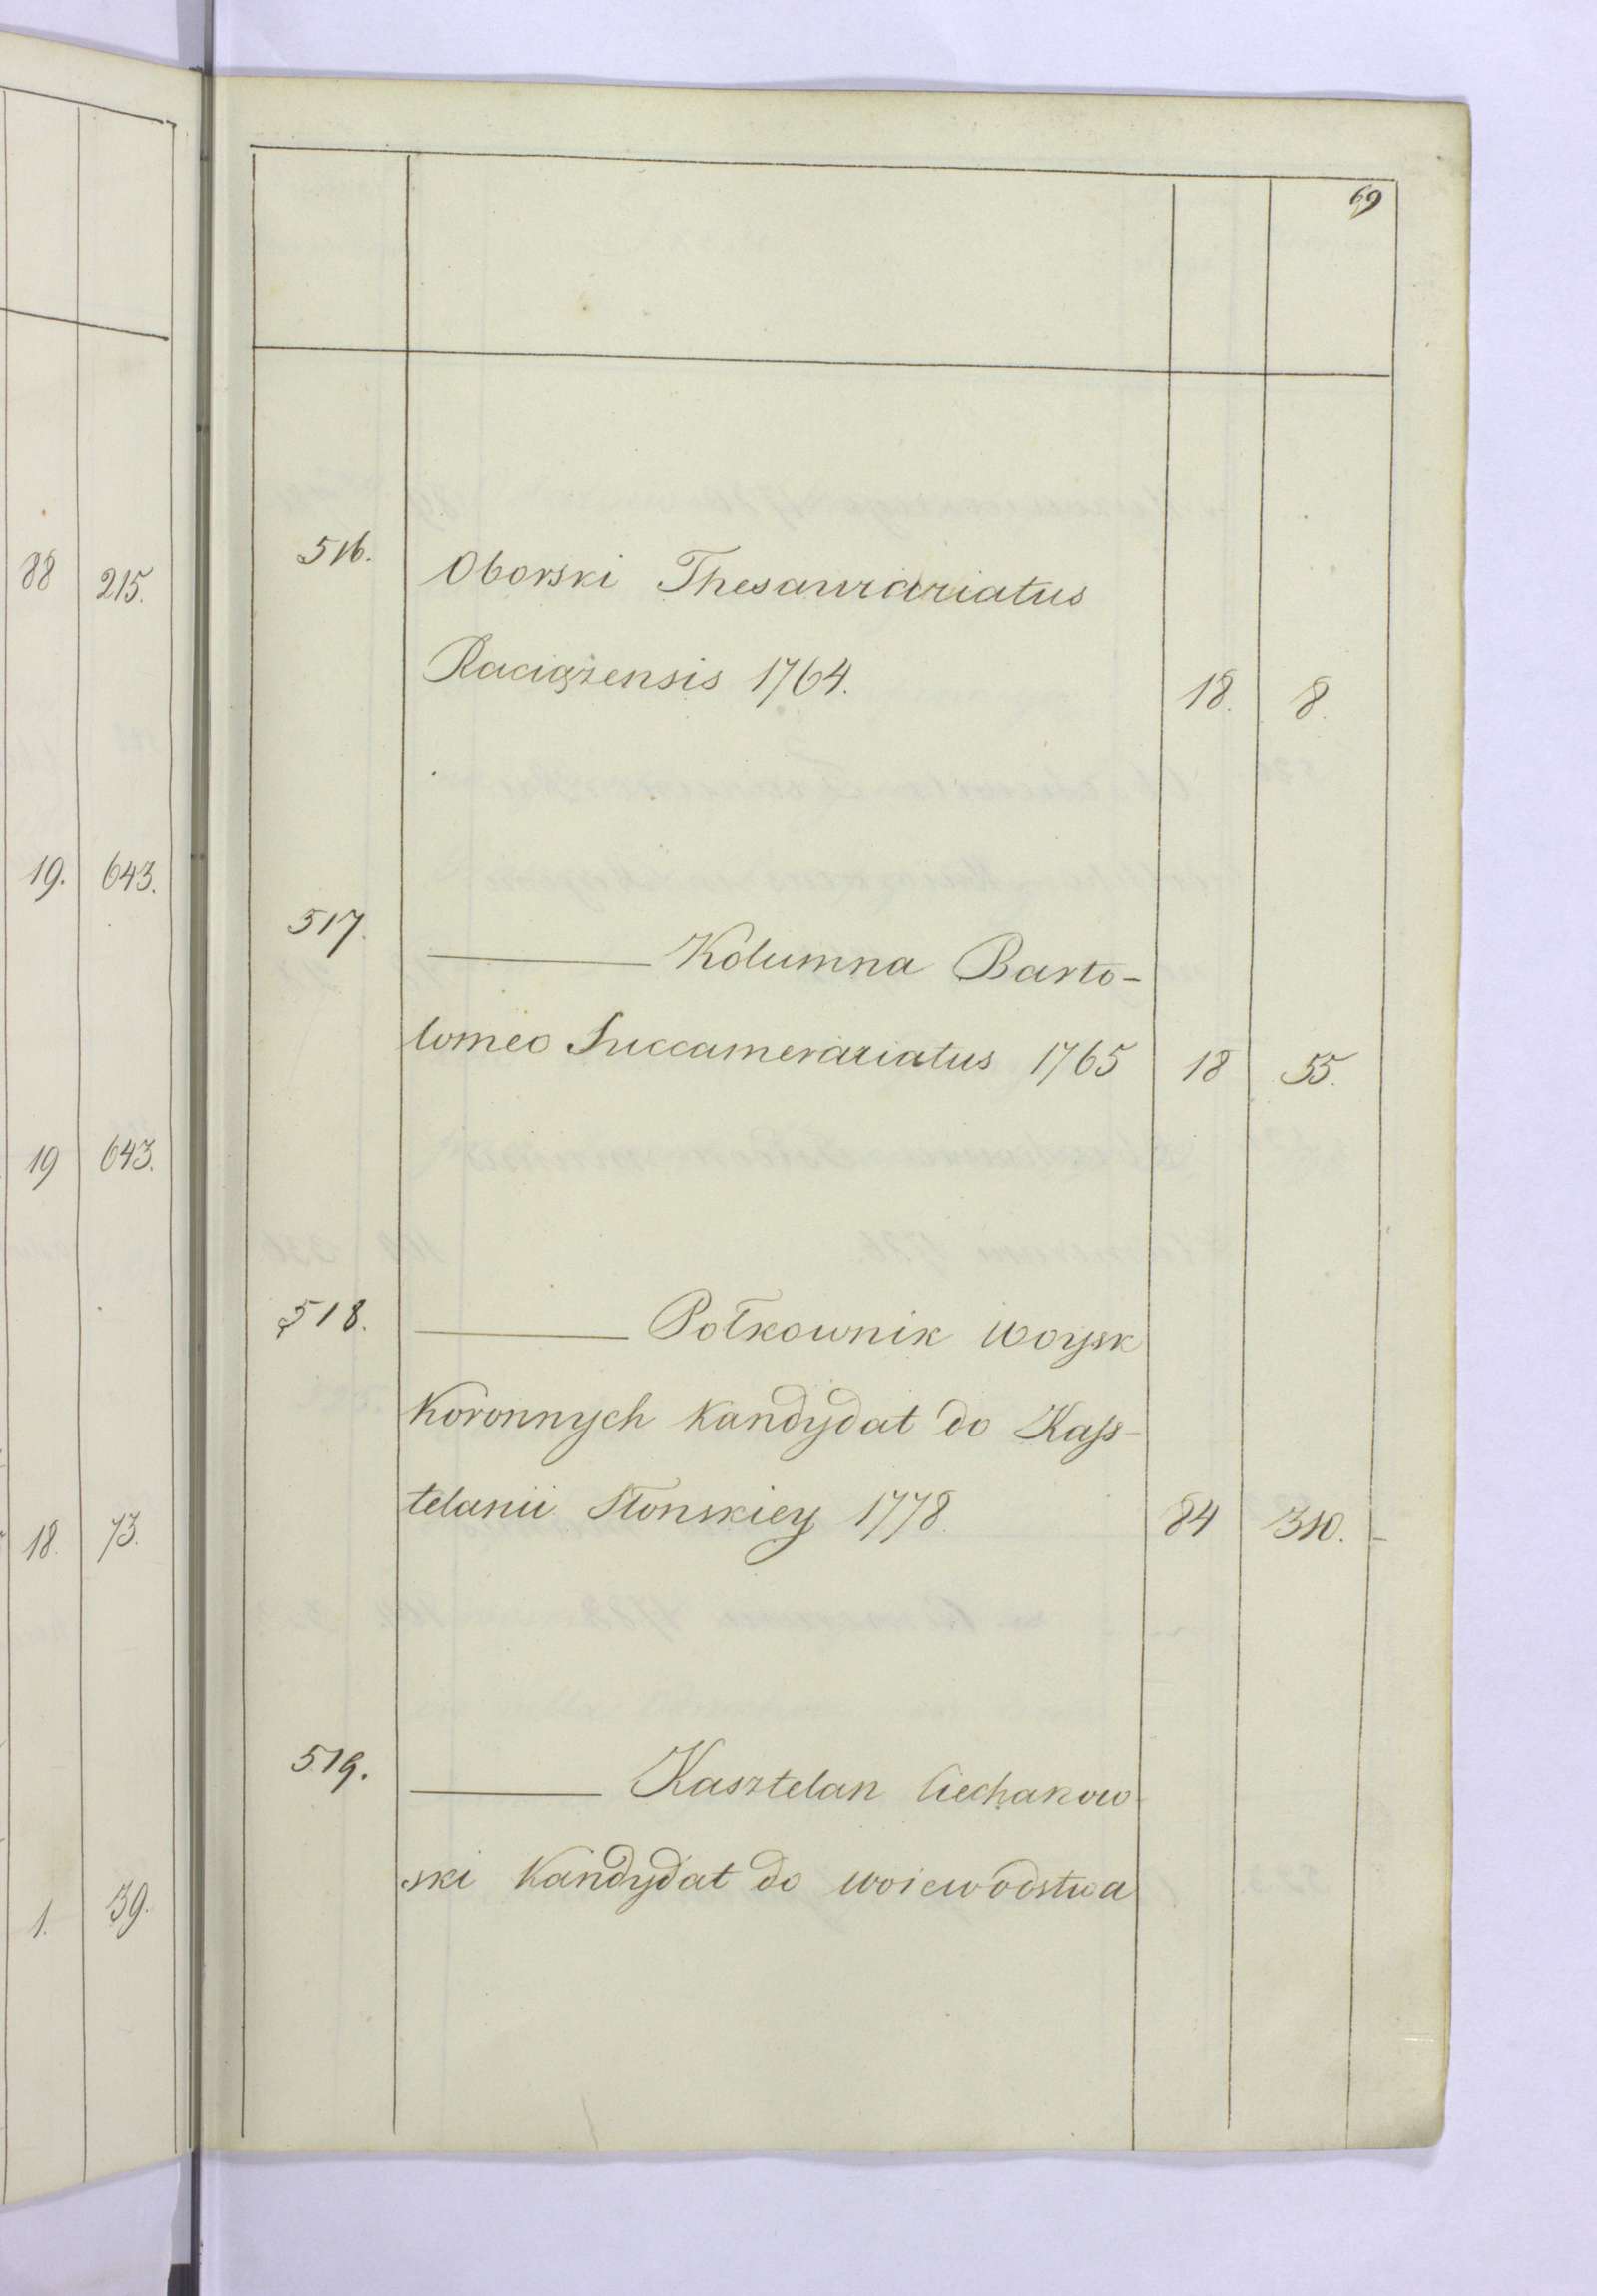 88 215.
19. 643.
19 643.
18. 73.
1. 39.
69
516. Oborski Thesaurariatus
Raciązensis 1764. 18. 8.
517. ——— Kolumna Barto-
lomeo Succamerariatus 1765 18 55.
518. ——— Połkownik woysk
Koronnych Kandydat do Kass-
telanii Słonskiey 1778. 84 310.
519. ——— Kasztelan Ciechanow-
ski Kandydat do woiewodstwa